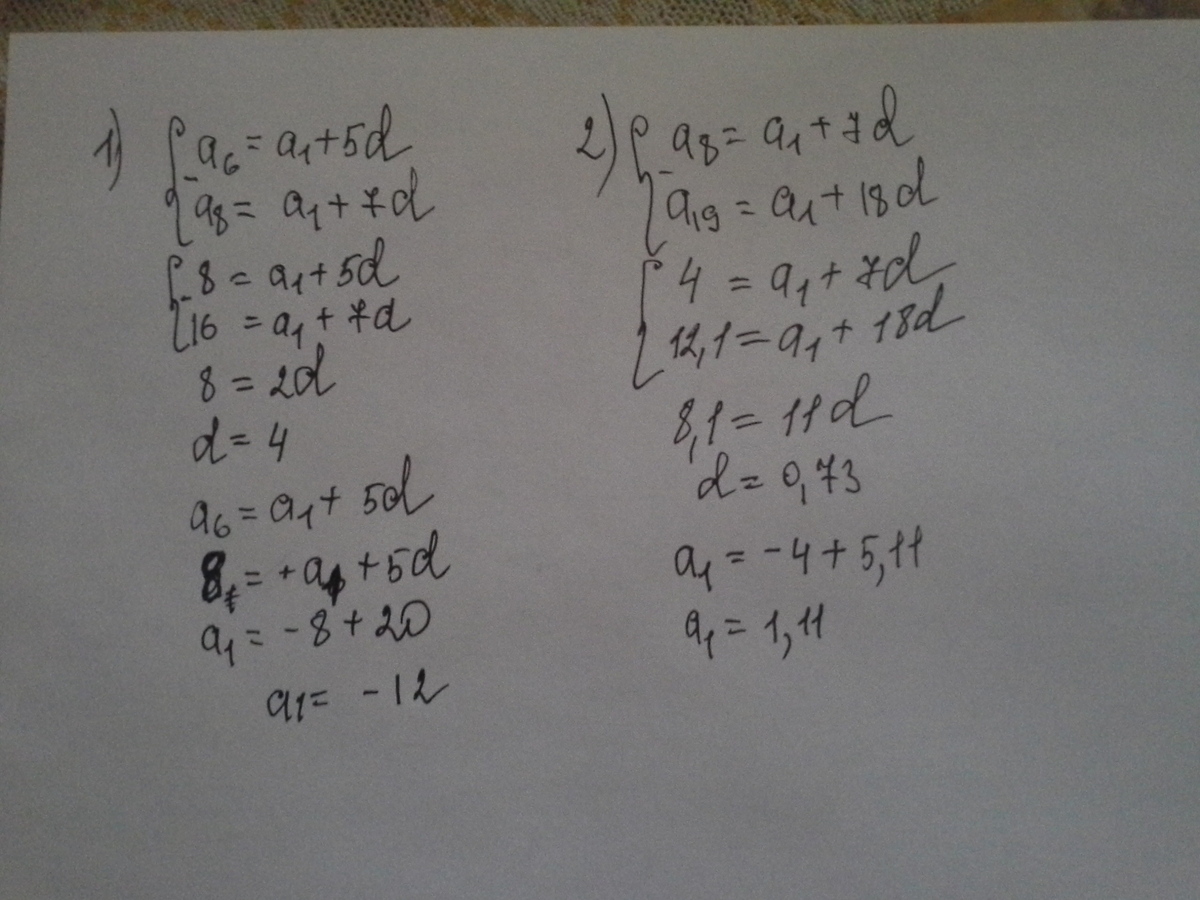 1) a₆ = a₁ + 5d
a₈ = a₁ + 7d
8 = a₁ + 5d
16 = a₁ + 7d
8 = 2d
d = 4
a₆ = a₁ + 5d
8 = + a₁ + 5d
a₁ = - 8 + 20
a₁ = - 12
2) a₈ = a₁ + 7d
a₁₉ = a₁ + 18d
4 = a₁ + 7d
12,1 = a₁ + 18d
8,1 = 11d
d = 0,73
a₁ = - 4 + 5,11
a₁ = 1,11